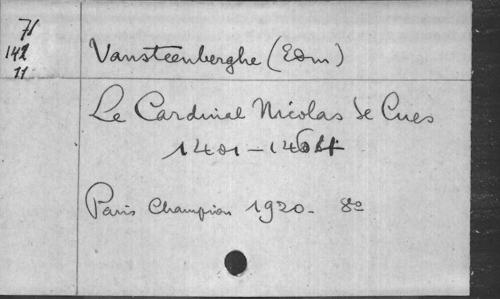 71
142
11
Vansteenberghe (Edm)
Le Cardinal Nicolas de Cues
1401-1464
Paris Champion 1920- 8º